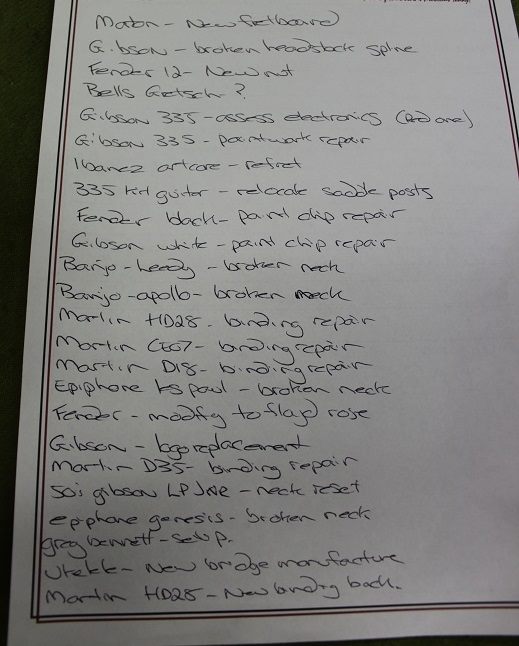 Maton - New fretboard
Gibson - broken headstock spline
Fender 12 - New nut
Bells Gretsch ?
Gibson 335 - assess electronics (Red one)
Gibson 335 - paintwork repair
Ibanez artcore - refret
335 Kit guitar - relocate saddle posts
Fender black - paint chip repair
Gibson white - paint chip repair
Banjo - - broken neck
Banjo - apollo - broken neck
Martin HD28 - binding repair
Martin CEO7 - binding repair
Martin D18 - binding repair
Epiphone les paul - broken neck
Fender - modify to floyd rose
Gibson - logo replacement
Martin D35 - binding repair
gibson LP - neck reset
epiphone genesis - broken neck
greg bennett - setup.
- New bridge manufacture
Martin HD28 - New binding back.